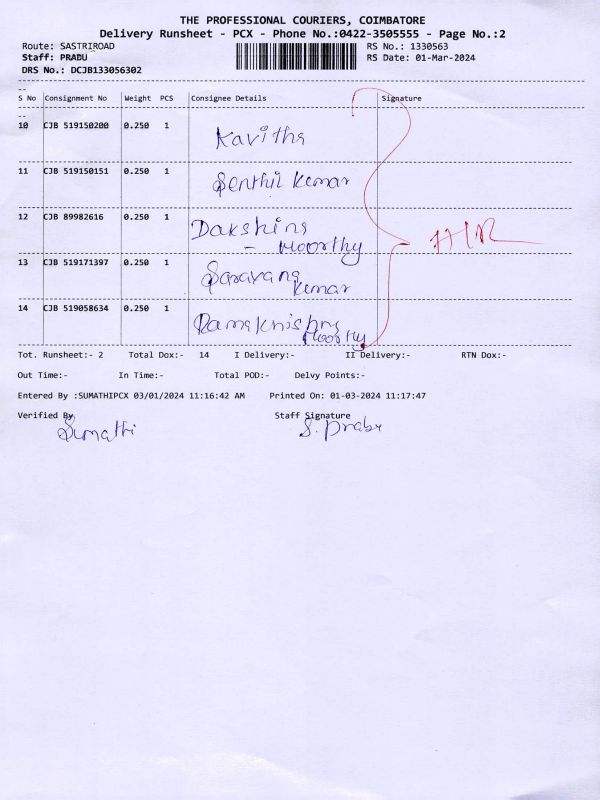 THE PROFESSIONAL COURIERS, COIMBATORE
Delivery Runsheet - PCX - Phone No.:0422-3505555 - Page No.:2
Route: SASTRIROAD RS No.: 1330563
Staff: PRABU RS Date: 01-Mar-2024
DRS No.: DCJB133056302
S No Consignment No Weight PCS Consignee Details Signature
10 CJB 519150200 0.250 1 Kavitha
11 CJB 519150151 0.250 1 Senthil Kumar
12 CJB 89982616 0.250 1 Dakshina
- Moorthy
13 CJB 519171397 0.250 1 Saravana
Kumar
14 CJB 519058634 0.250 1 Ramakrishna
Moorthy
Tot. Runsheet:- 2 Total Dox:- 14 I Delivery:- II Delivery:- RTN Dox:-
Out Time:- In Time:- Total POD:- Delvy Points:-
Entered By :SUMATHIPCX 03/01/2024 11:16:42 AM Printed On: 01-03-2024 11:17:47
Verified By Staff Signature
Sumathi S. Prabu